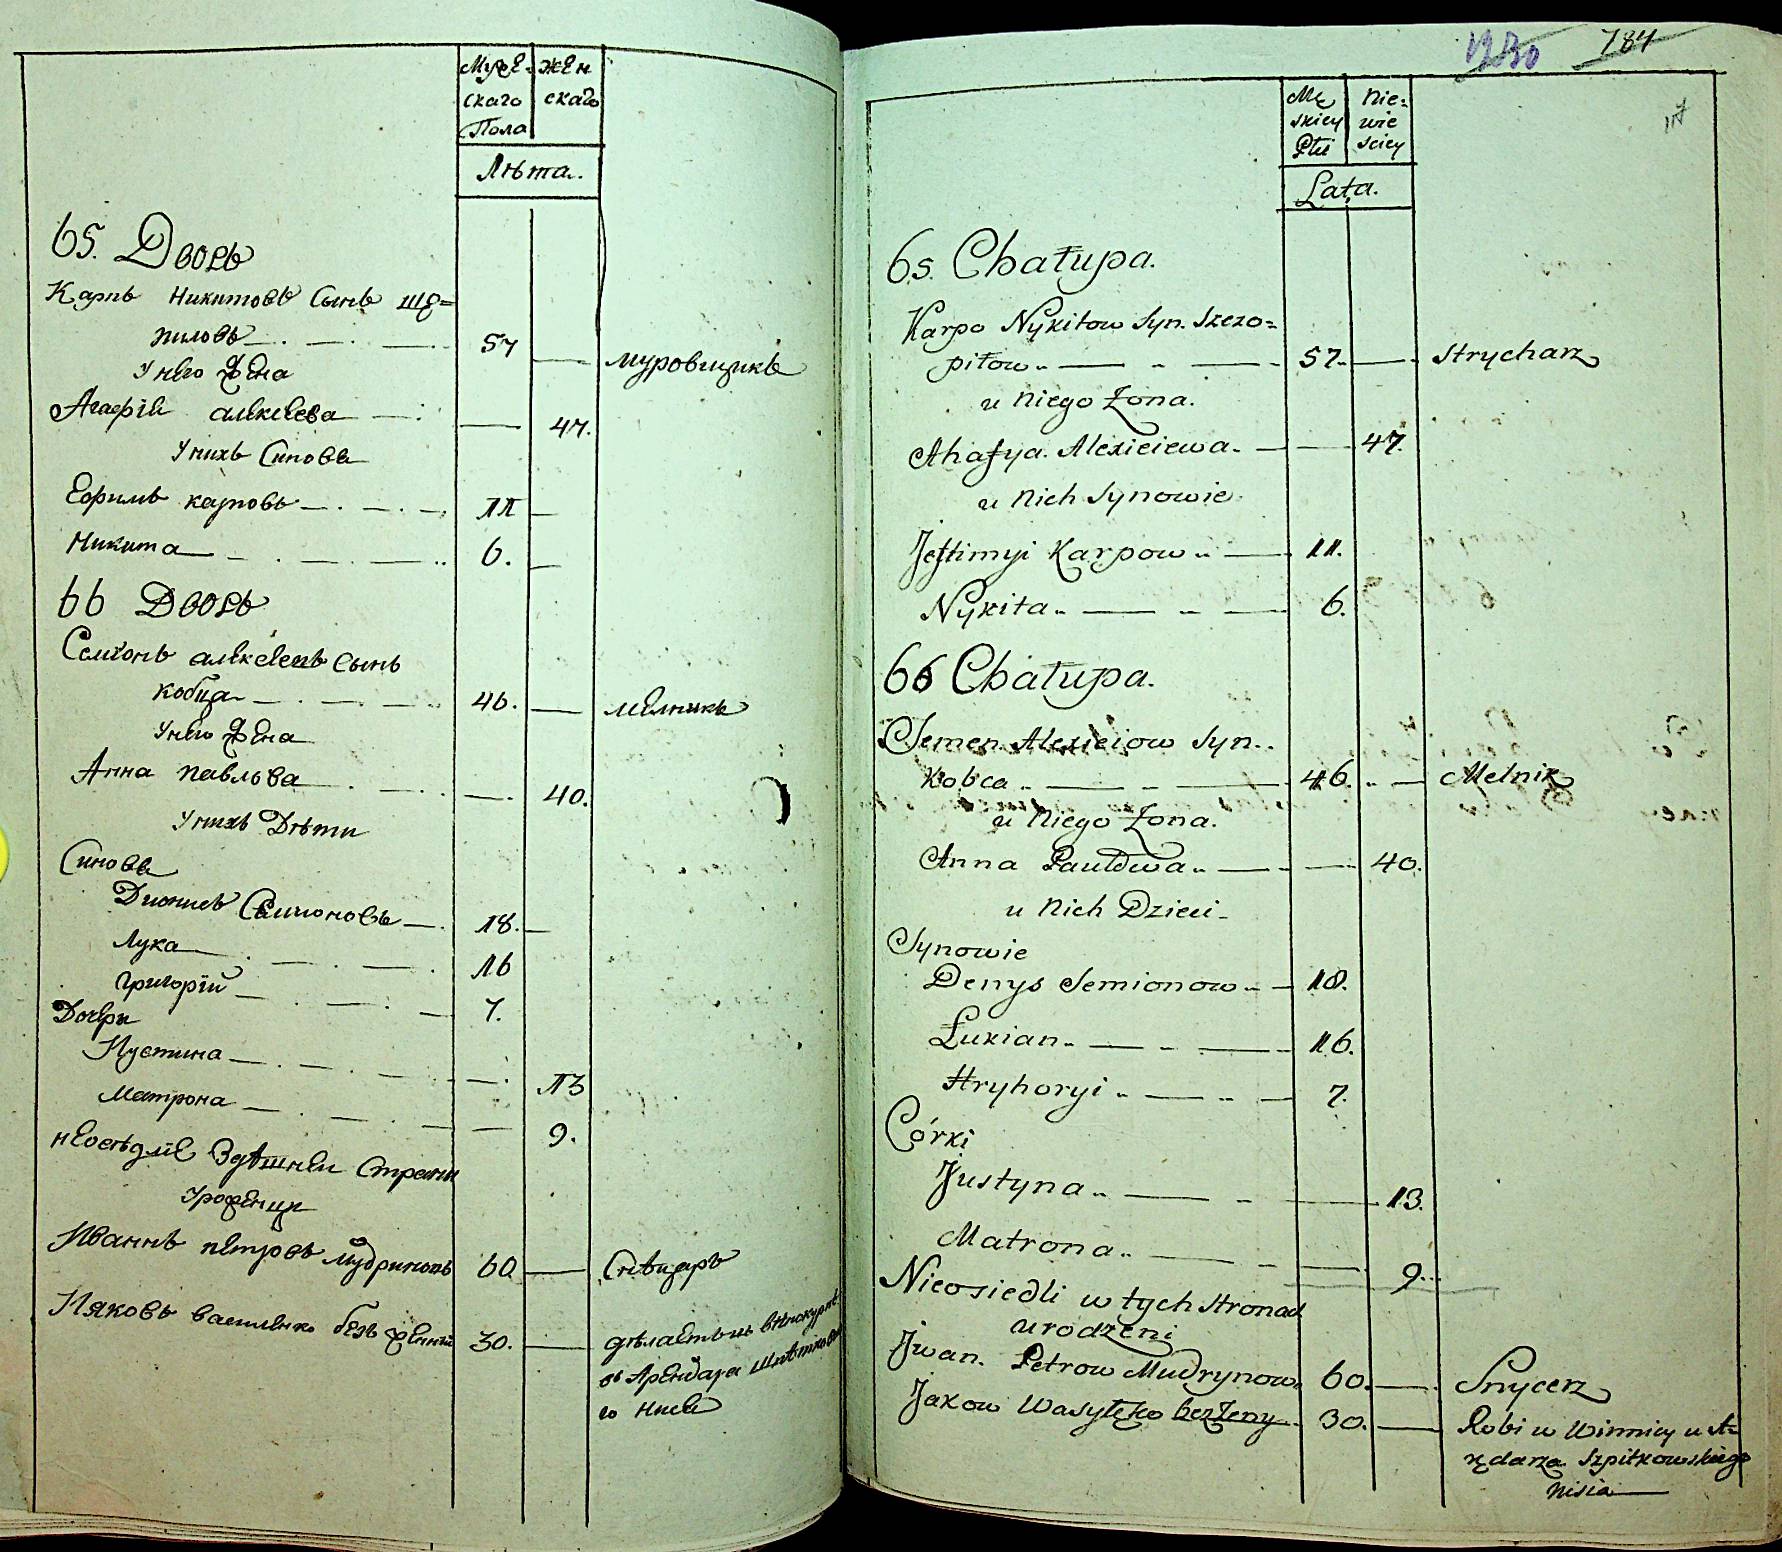 Муже- жен
скаго скаго
Пола
Лѣта.
65. Дворъ
Карпъ Никитовъ Сынъ Ще=
пиловъ 57 муровщикъ
У него жена
Агафія алексеева 47.
У нихъ Синове
Ефимъ карповъ 11
Никита 6.
66 Дворъ
Семіонъ алексеевъ Сынъ
кобца 46. мелникъ
У него жена
Анна павлова 40.
У нихъ Дѣти
Синове
Дионисъ Семионовъ 18.
Лука 16
Григорій 7.
Дочери
Иустина 13
Матрона 9.
неосѣдліе Здѣшнеи Страни
Уроженци
Иваннъ петровъ мудриновъ 60 Снѣцаръ
Ияковъ василенко безъ жении 30.
1230 784
117
Mę Nie=
skiey wie
Płci sciey
Lata.
65. Chałupa.
Karpo Nykitow Syn. Szczo=
piłow 57. Strycharz
u Niego Zona.
Ahafya. Alexieiewa. 47.
u Nich Synowie
Jeftimyi Karpow 11.
Nykita 6.
66 Chałupa.
Semen Alexieiow Syn..
Kobca 46. Melnik
u Niego Zona.
Anna Pawłowa 40.
u Nich Dzieci
Synowie
Denys Semionow 18.
Łukian 16.
Hryhoryi 7.
Córki
Justyna 13.
Matrona 9.
Nieosiedli w tych Stronach
urodzeni
Jwan. Petrow Mudrynow 60. Snycerz
Jakow Wasylko bez Zeny 30. Robi w Winnicy u A=
rędarza Szpitkowskiego
Nisia